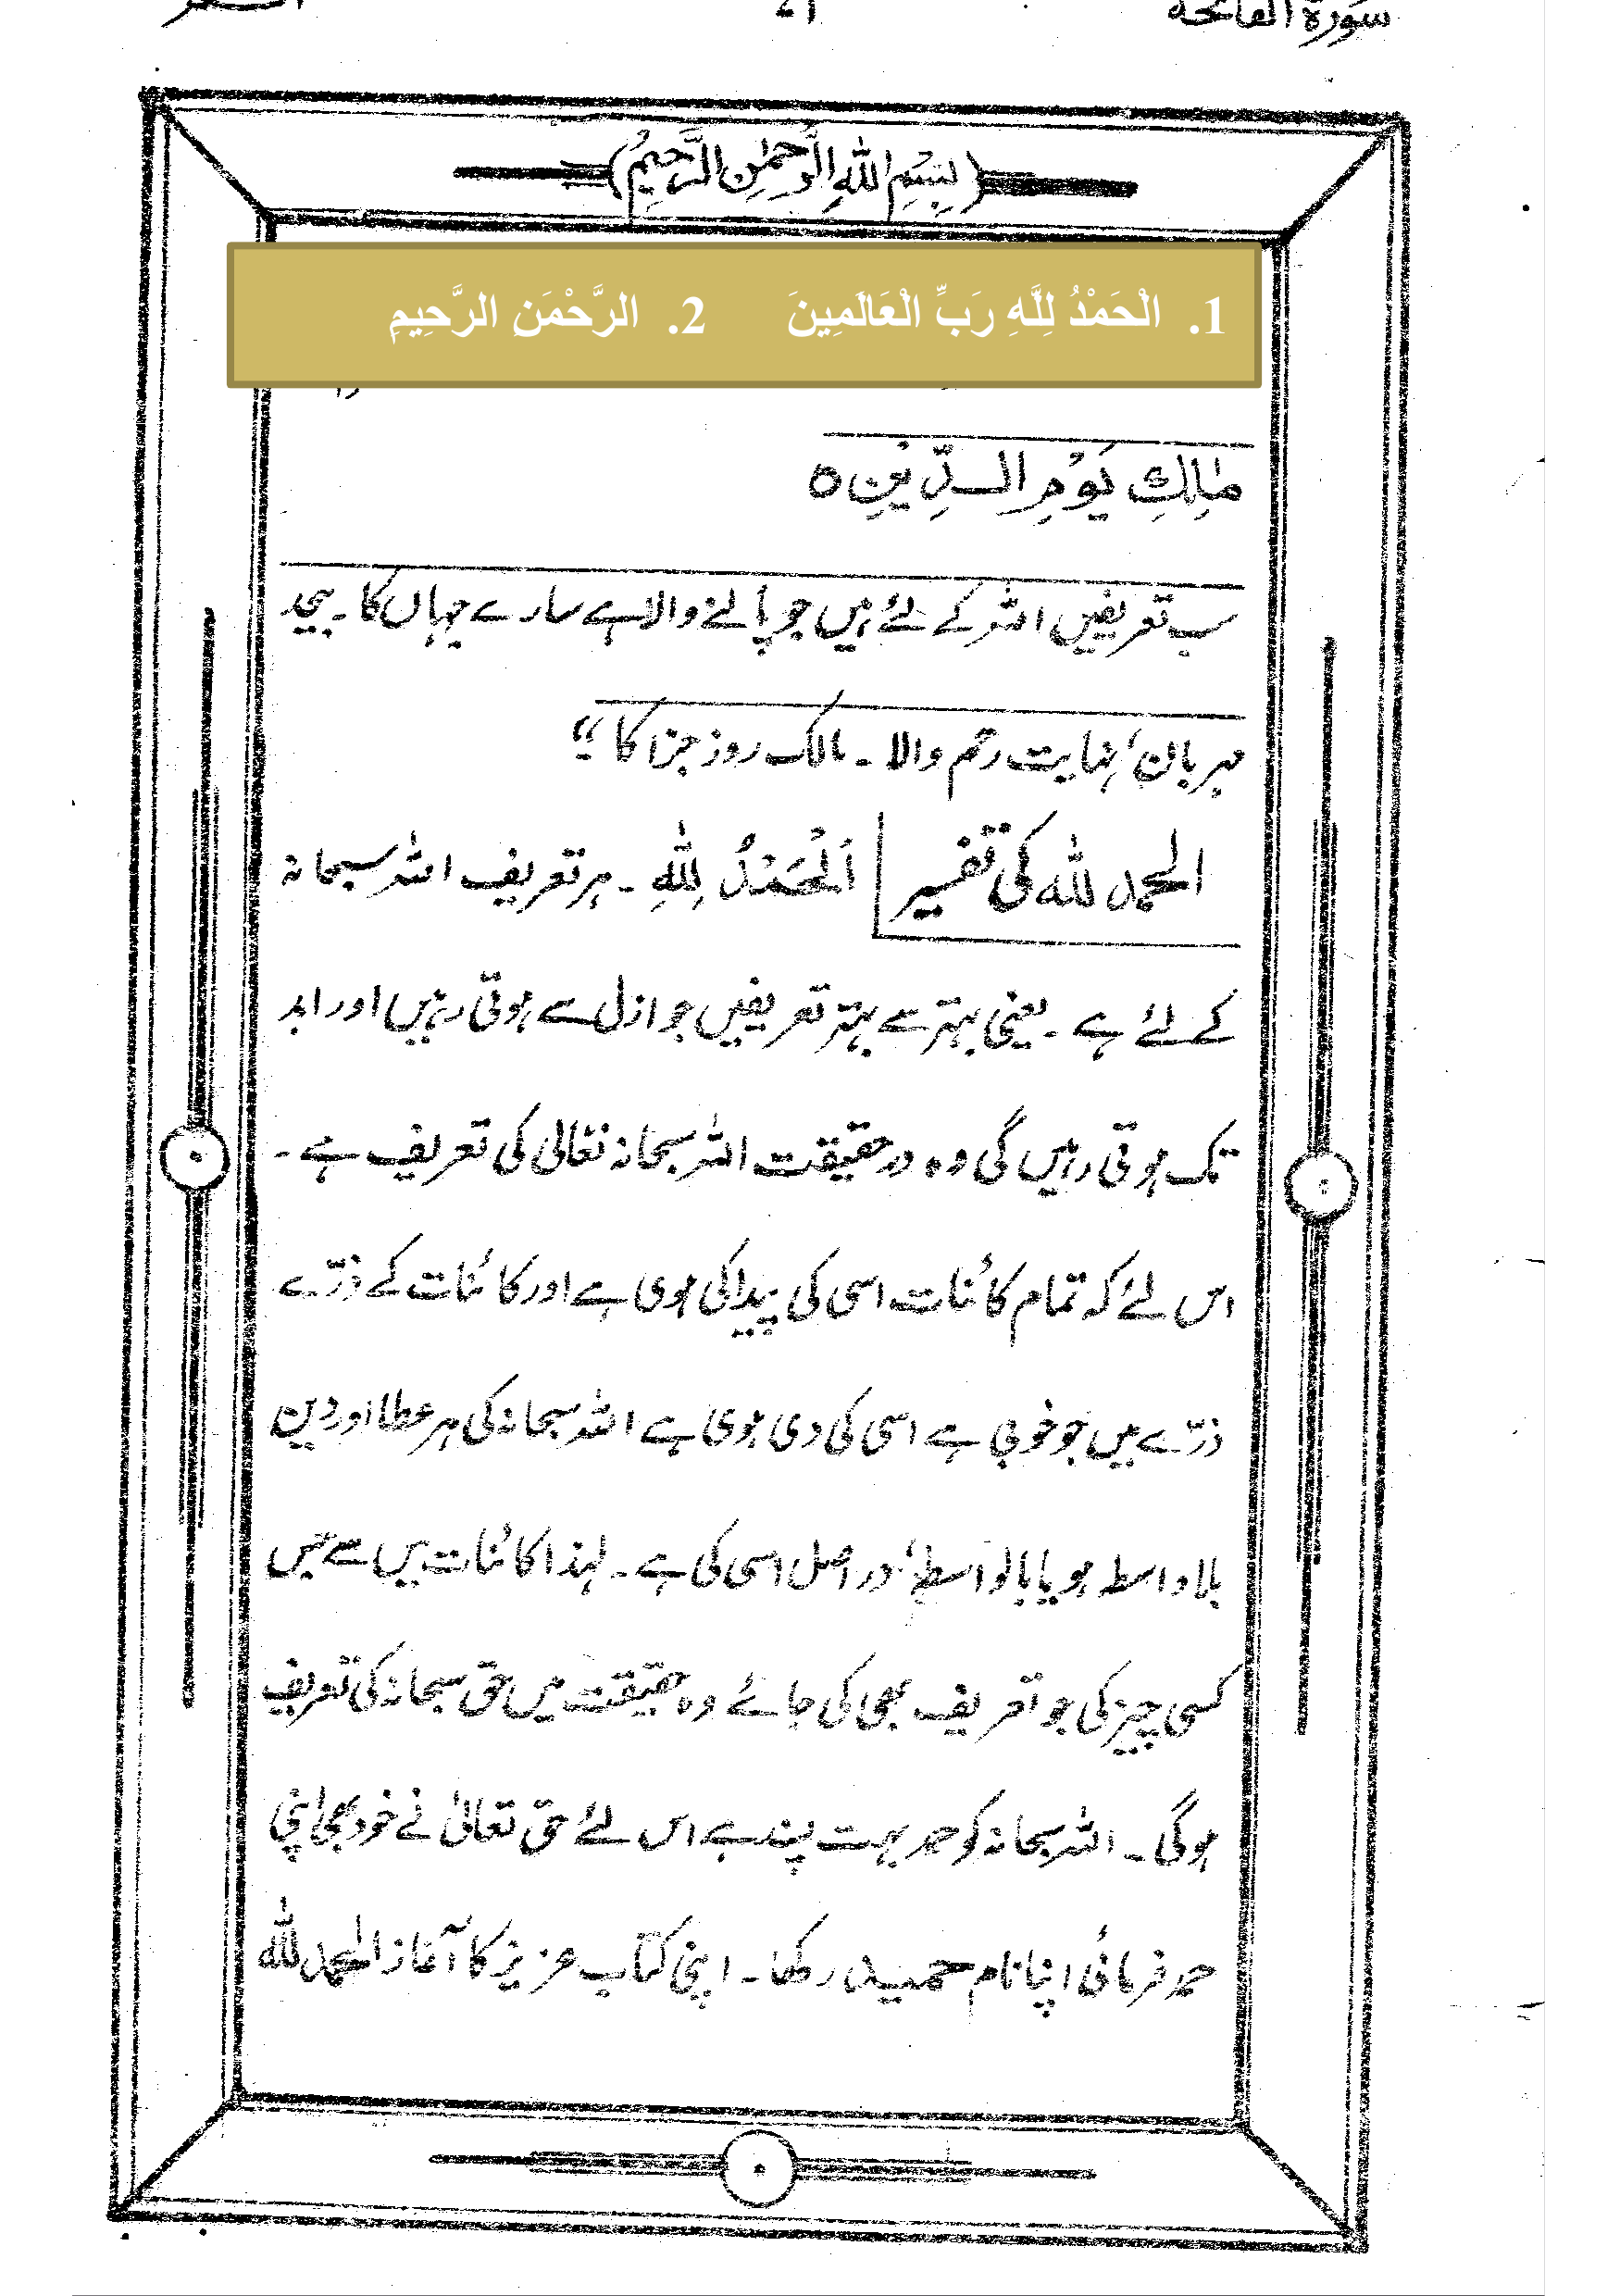 سورة الفاتحة
بِسْمِ اللهِ الرَّحْمٰنِ الرَّحِيْمِ
1. الْحَمْدُ لِلَّهِ رَبِّ الْعَالَمِينَ 2. الرَّحْمَنِ الرَّحِيمِ
مٰلِكِ يَوْمِ الدِّيْنِ ○
سب تعریفیں اللہ کے لئے ہیں جو پالنے والا ہے سارے جہاں کا۔ بیحد
مہربان، نہایت رحم والا۔ مالک روز جزا کا ‘‘
الحمد للہ کی تفسیر اَلْحَمْدُ لِلّٰهِ۔ ہر تعریف اللہ سبحانہ
کے لئے ہے۔ یعنی بہتر سے بہتر تعریفیں جو ازل سے ہوتی رہیں اور ابد
تک ہوتی رہیں گی وہ درحقیقت اللہ سبحانہ تعالیٰ کی تعریف ہے۔
اس لئے کہ تمام کائنات اسی کی پیدا کی ہوی ہے اور کائنات کے ذرّے
ذرّے میں جو خوبی ہے اسی کی دی ہوی ہے اللہ سبحانہ کی ہر عطا اور دین
بلا واسطہ ہو یا بالواسطہ، در اصل اسی کی ہے۔ لہذا کائنات میں سے جس
کسی چیز کی جو تعریف بھی کی جائے وہ حقیقت میں حق سبحانہ کی تعریف
ہوگی۔ اللہ سبحانہ کو حمد بہت پسند ہے اس لئے حق تعالیٰ نے خود بھی اپنی
حمد فرمائی اپنا نام حمید رکھا۔ اپنی کتاب عزیز کا آغاز الحمد للہ